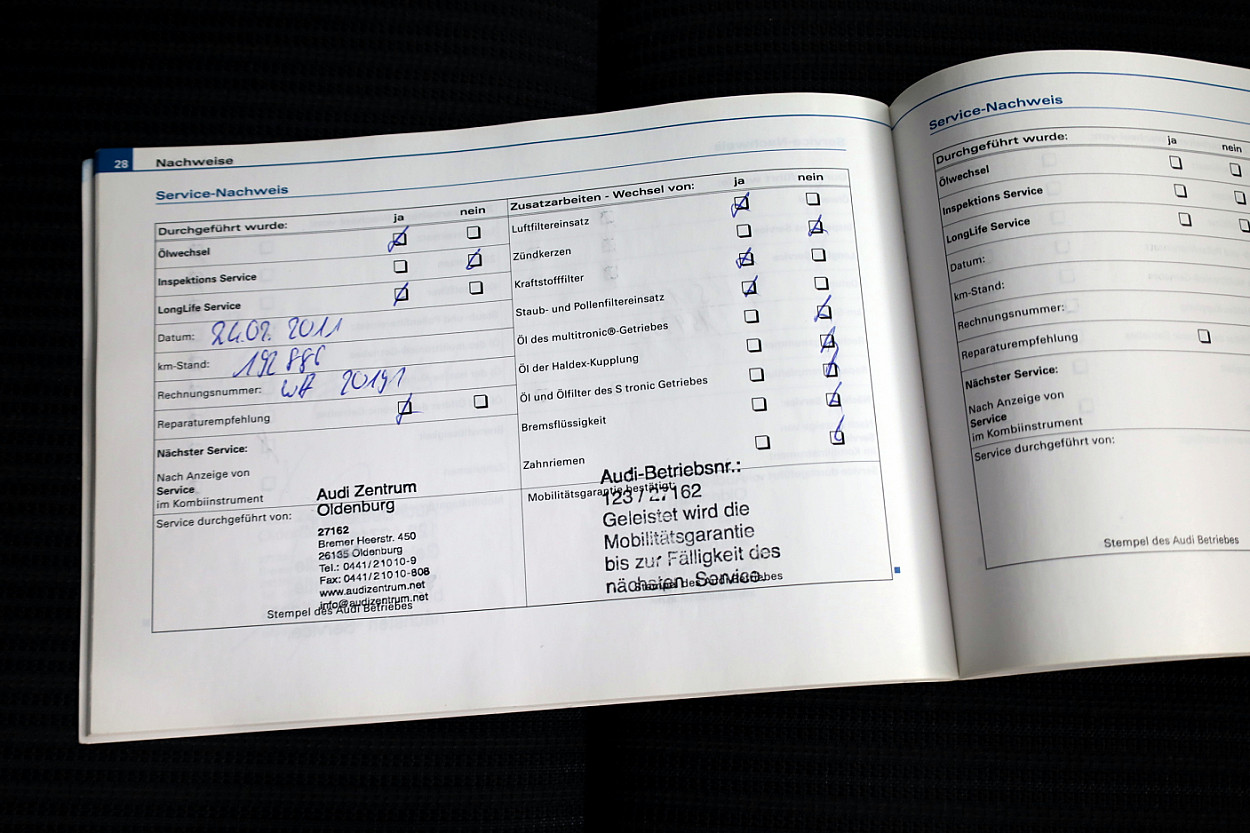 28 Nachweise
Service-Nachweis
Durchgeführt wurde: ja nein
Ölwechsel
Inspektions Service
LongLife Service
Datum: 24.02. 2011
km-Stand: 192 886
Rechnungsnummer: 20191
Reparaturempfehlung
Nächster Service:
Nach Anzeige von
Service
im Kombiinstrument
Service durchgeführt von:
Audi Zentrum
Oldenburg
27162
Bremer Heerstr. 450
26135 Oldenburg
Tel.: 0441/21010-9
Fax: 0441/21010-808
www.audizentrum.net
info@audizentrum.net
Stempel des Audi Betriebes
Zusatzarbeiten - Wechsel von: ja nein
Luftfiltereinsatz
Zündkerzen
Kraftstofffilter
Staub- und Pollenfiltereinsatz
Öl des multitronic®-Getriebes
Öl der Haldex-Kupplung
Öl und Ölfilter des S tronic Getriebes
Bremsflüssigkeit
Zahnriemen
Mobilitätsgarantie bestätigt:
Audi-Betriebsnr.:
123 / 27162
Geleistet wird die
Mobilitätsgarantie
bis zur Fälligkeit des
nächsten Service.
Stempel des Audi Betriebes
Service-Nachweis
Durchgeführt wurde: ja nein
Ölwechsel
Inspektions Service
LongLife Service
Datum:
km-Stand:
Rechnungsnummer:
Reparaturempfehlung
Nächster Service:
Nach Anzeige von
Service
im Kombiinstrument
Service durchgeführt von:
Stempel des Audi Betriebes